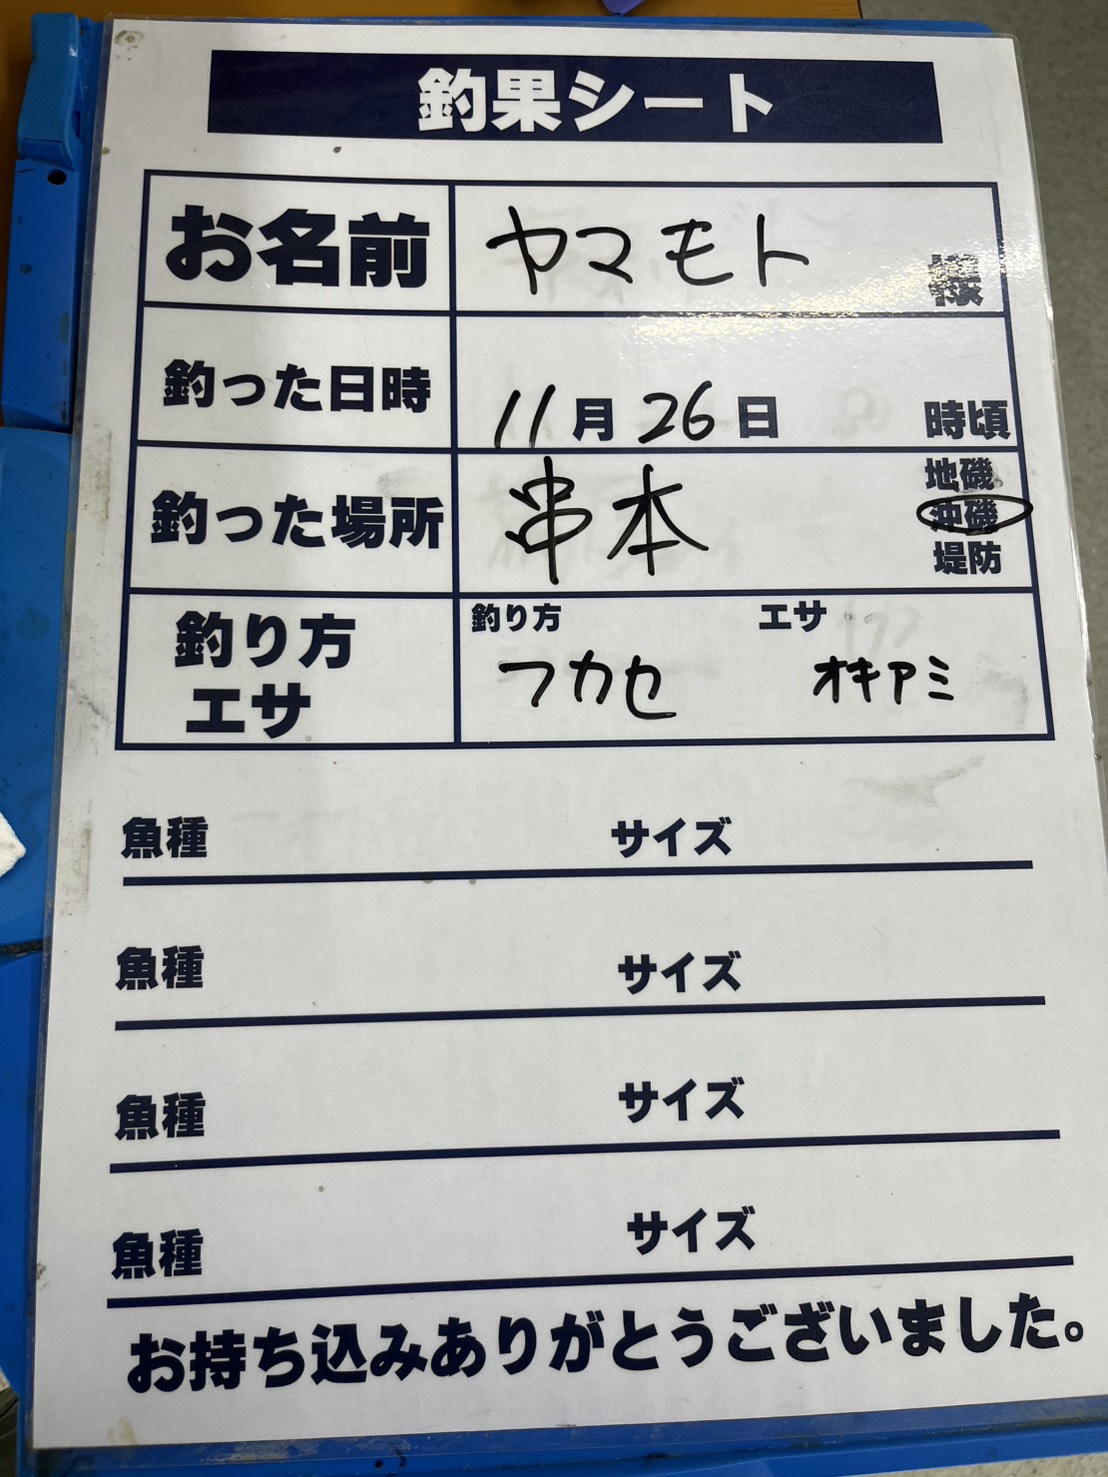 釣果シート
お名前 ヤマモト 様
釣った日時 11月26日 時頃
釣った場所 串本 地磯
沖磯
堤防
釣り方 エサ
釣り方
エサ
フカセ オキアミ
魚種 サイズ
魚種 サイズ
魚種 サイズ
魚種 サイズ
お持ち込みありがとうございました。